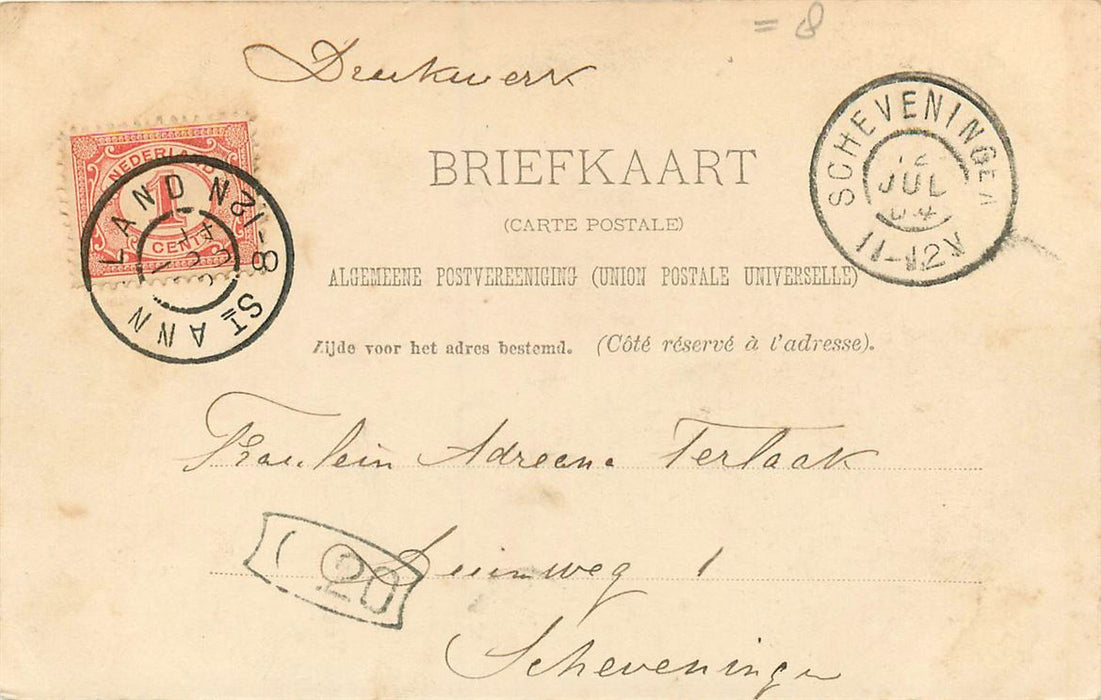 = 8
Drukwerk
NEDERLAND
1
CENT
ST ANNALAND
8-12N
SCHEVENINGEN
12
JUL
04
11-12V
BRIEFKAART
(CARTE POSTALE)
ALGEMEENE POSTVEREENIGING (UNION POSTALE UNIVERSELLE)
Zijde voor het adres bestemd. (Côté réservé à l'adresse).
Fraulein Adreena Terlaak
Duinweg 1
20
Scheveningen